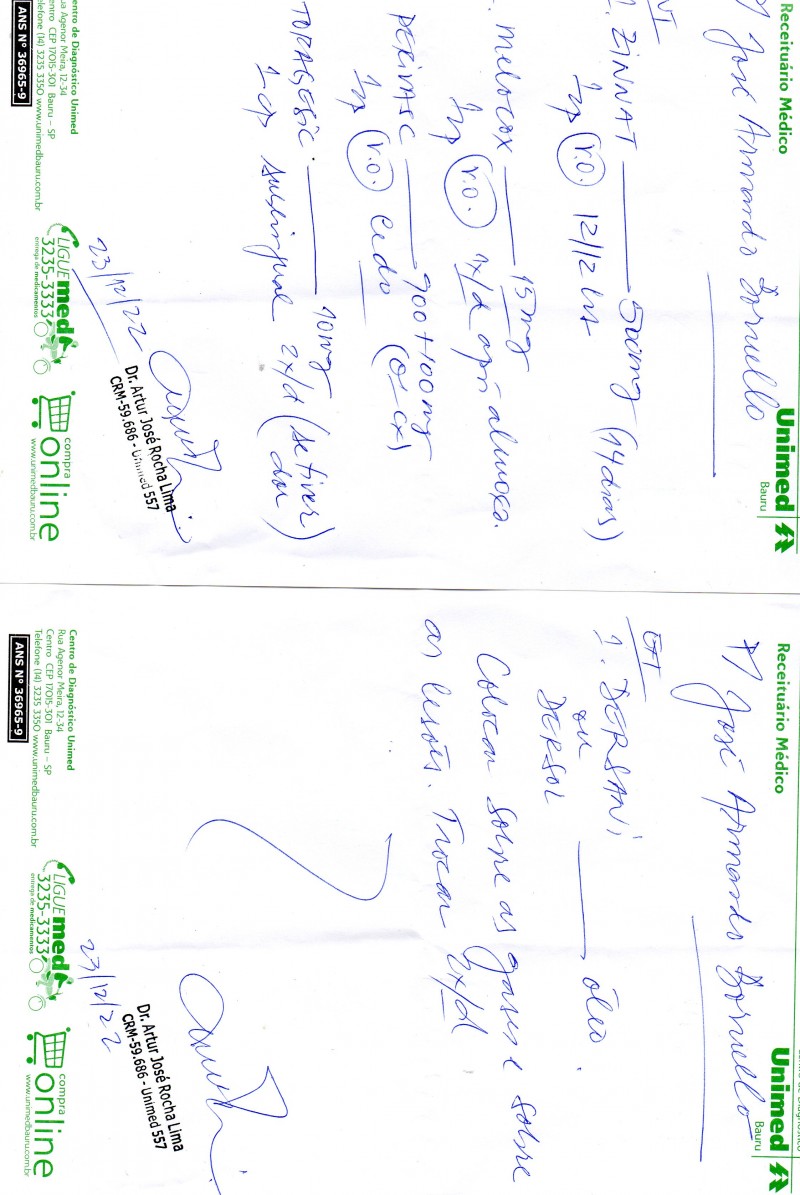 Receituário Médico
Unimed
Bauru
P/ José Armando Bornello
1. ZINNAT 500mg (14 dias)
1cp V.O. 12/12 hs
MELOCOX 15mg
1cp V.O. 1x/d após almoço.
PERIVASC 900+100mg
1cp V.O. cedo (01 cx)
TORAGESIC 10mg
1 cp sublingual 2x/d (se tiver dor)
23/12/22
Dr. Artur José Rocha Lima
CRM-59.686 - Unimed 557
Centro de Diagnóstico Unimed
Rua Agenor Meira, 12-34
Centro CEP 17015-301 Bauru – SP
Telefone (14) 3235 3350 www.unimedbauru.com.br
ANS Nº 36965-9
LIGUEmed
3235-3333
entrega de medicamentos
compra
online
www.unimedbauru.com.br
Receituário Médico
Unimed
Bauru
P/ José Armando Bornello
EXT
1. DERSANI óleo.
ou
DERSOL
Colocar sobre as gases e sobre
as lesões. Trocar 2x/d
23/12/22
Dr. Artur José Rocha Lima
CRM-59.686 - Unimed 557
Centro de Diagnóstico Unimed
Rua Agenor Meira, 12-34
Centro CEP 17015-301 Bauru – SP
Telefone (14) 3235 3350 www.unimedbauru.com.br
ANS Nº 36965-9
LIGUEmed
3235-3333
entrega de medicamentos
compra
online
www.unimedbauru.com.br